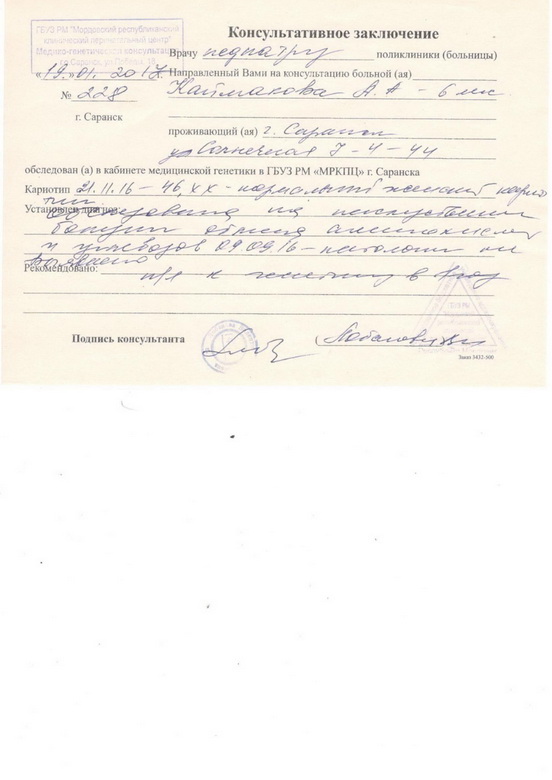 ГБУЗ РМ "Мордовский республиканский
клинический перинатальный центр"
Медико-генетическая консультация
г. Саранск, ул. Победы, 18
Консультативное заключение
Врачу педиатру поликлиники (больницы)
«19» 01. 2017 Направленный Вами на консультацию больной (ая)
№ 228 Каймакова А. А - 6 мес.
г. Саранск
проживающий (ая) г. Саранск
ул Солнечная 7-4-44
обследован (а) в кабинете медицинской генетики в ГБУЗ РМ «МРКПЦ» г. Саранска
Кариотип 21.11.16 - 46,ХХ - нормальный женский карио
тип
Установлен диагноз: на наследственные
обмена аминокислот
и углеводов 09.09.16 - патологии не
выявлено
Рекомендовано: к генетику в 1 год
Подпись консультанта
Заказ 3432-500